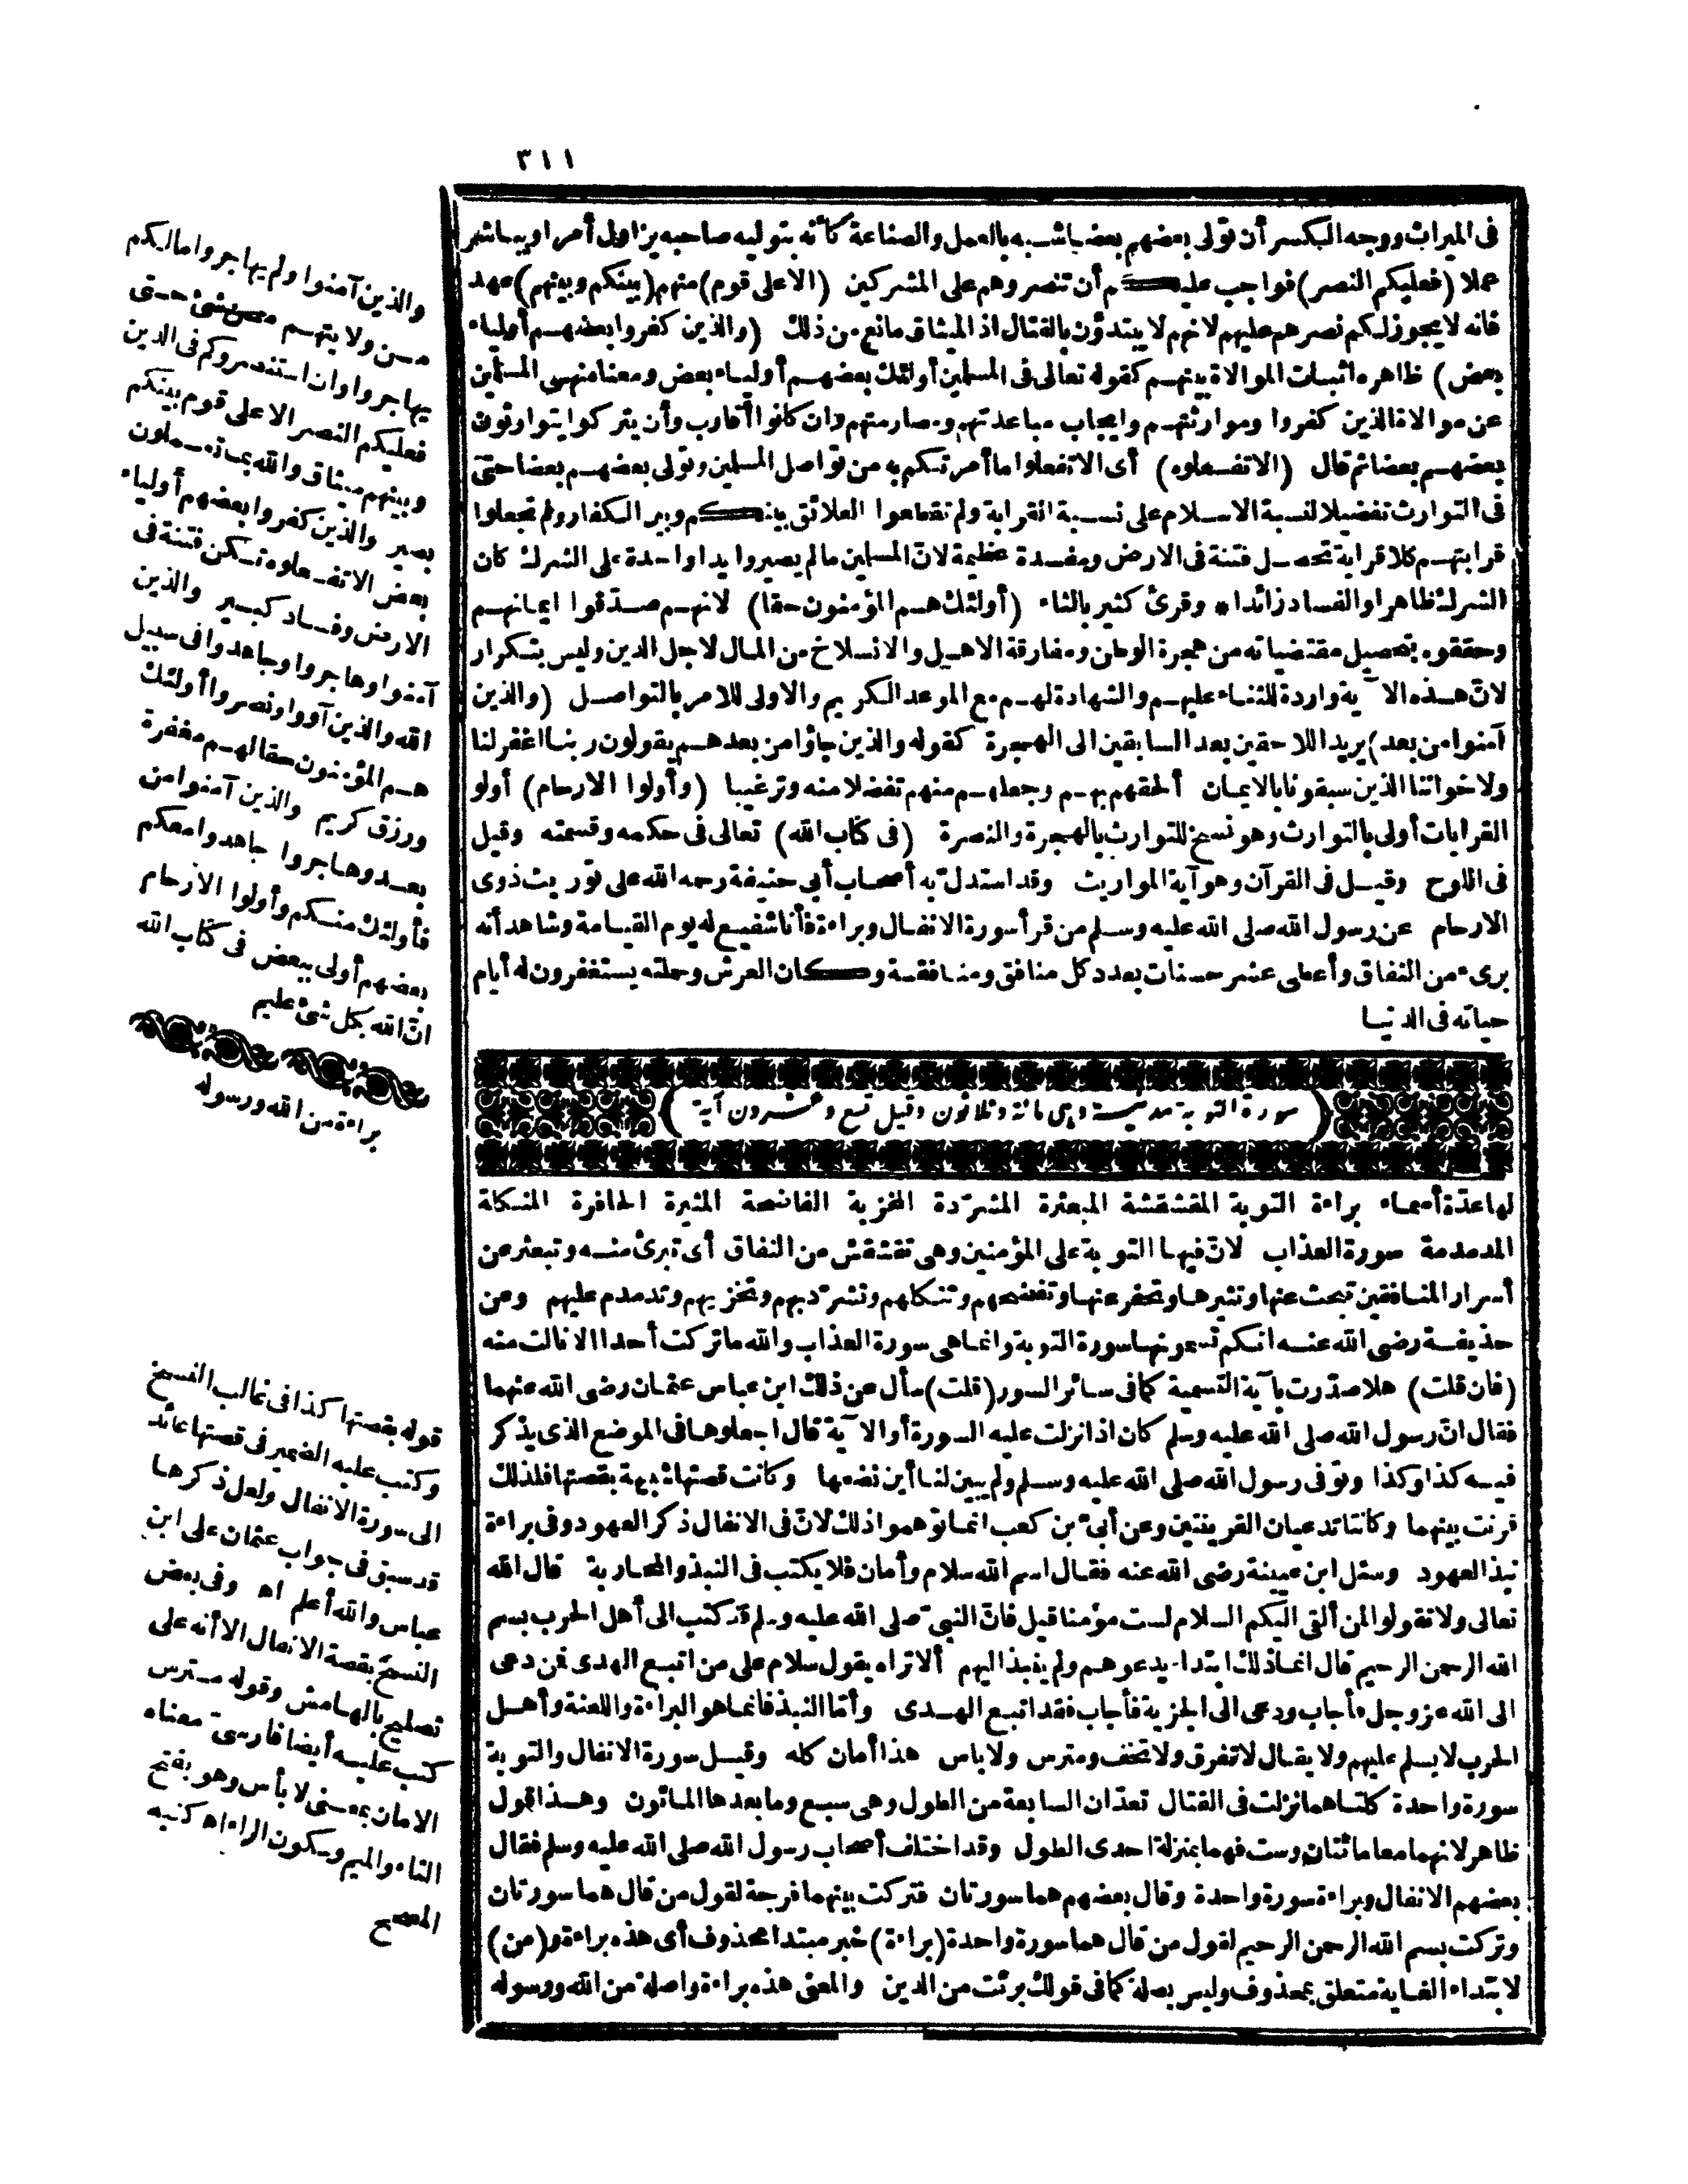 ٣١١
فى الميراث ووجه الكسر أن تولى بعضهم بعضا شبه بالعمل والصناعة كأنه بتوليه صاحبه يزاول أمرا ويباشر
عملا (فعليكم النصر) فواجب عليكم أن تنصروهم على المشركين (الا على قوم) منهم (بينكم وبينهم) عهد
فانه لا يجوز لكم نصرهم عليهم لانهم لا يبتدؤن بالقتال اذ الميثاق مانع من ذلك (والذين كفروا بعضهم أولياء
بعض) ظاهره اثبات الموالاة بينهم كقوله تعالى فى المسلمين أولئك بعضهم أولياء بعض ومعناه نهى المسلمين
عن موالاة الذين كفروا وموارثتهم وايجاب مباعدتهم ومصارمتهم وان كانوا أقارب وأن يتركوا يتوارثون
بعضهم بعضا ثم قال (الا تفعلوه) أى الا تفعلوا ما أمرتكم به من تواصل المسلمين وتولى بعضهم بعضا حتى
فى التوارث تفضيلا لنسبة الاسلام على نسبة القرابة ولم تقطعوا العلائق بينكم وبين الكفار ولم تجعلوا
قرابتهم كلا قرابة تحصل فتنة فى الارض ومفسدة عظيمة لانّ المسلمين ما لم يصيروا يدا واحدة على الشرك كان
الشرك ظاهرا والفساد زائدا * وقرئ كثير بالثاء (أولئك هم المؤمنون حقا) لانهم صدّقوا ايمانهم
وحققوه بتحصيل مقتضياته من هجرة الوطن ومفارقة الاهل والانسلاخ من المال لاجل الدين وليس بتكرار
لانّ هذه الآية واردة للثناء عليهم والشهادة لهم مع الموعد الكريم والاولى للامر بالتواصل (والذين
آمنوا من بعد) يريد اللاحقين بعد السابقين الى الهجرة كقوله والذين جاؤا من بعدهم يقولون ربنا اغفر لنا
ولاخواننا الذين سبقونا بالايمان ألحقهم بهم وجعلهم منهم تفضلا منه وترغيبا (وأولوا الارحام) أولو
القرابات أولى بالتوارث وهو نسخ للتوارث بالهجرة والنصرة (فى كتاب الله) تعالى فى حكمه وقسمته وقيل
فى اللوح وقيل فى القرآن وهو آية المواريث وقد استدلّ به أصحاب أبى حنيفة رحمه الله على توريث ذوى
الارحام عن رسول الله صلى الله عليه وسلم من قرأ سورة الانفال وبراءة فأنا شفيع له يوم القيامة وشاهد أنه
برىء من النفاق وأعطى عشر حسنات بعدد كل منافق ومنافقة وكان العرش وحملته يستغفرون له أيام
حياته فى الدنيا
(سورة التوبة مدنية وهى مائة وثلاثون وقيل تسع وعشرون آية)
لها عدّة أسماء براءة التوبة المقشقشة المبعثرة المشرّدة المخزية الفاضحة المثيرة الحافرة المنكلة
المدمدمة سورة العذاب لانّ فيها التوبة على المؤمنين وهى تقشقش من النفاق أى تبرئ منه وتبعثر عن
أسرار المنافقين تبحث عنها وتثيرها وتحفر عنها وتفضحهم وتنكلهم وتشرّد بهم وتخزيهم وتدمدم عليهم وعن
حذيفة رضى الله عنه انكم تسمونها سورة التوبة وانما هى سورة العذاب والله ما تركت أحدا الا نالت منه
(فان قلت) هلا صدّرت بآية التسمية كما فى سائر السور (قلت) سأل عن ذلك ابن عباس عثمان رضى الله عنهما
فقال انّ رسول الله صلى الله عليه وسلم كان اذا نزلت عليه السورة أو الآية قال اجعلوها فى الموضع الذى يذكر
فيه كذا وكذا وتوفى رسول الله صلى الله عليه وسلم ولم يبين لنا أين نضعها وكانت قصتها شبيهة بقصتها فلذلك
قرنت بينهما وكانتا تدعيان القرينتين وعن أبىّ بن كعب انما توهموا ذلك لانّ فى الانفال ذكر العهود وفى براءة
نبذ العهود وسئل ابن عيينة رضى الله عنه فقال اسم الله سلام وأمان فلا يكتب فى النبذ والمحاربة قال الله
تعالى ولا تقولوا لمن ألقى اليكم السلام لست مؤمنا قيل فانّ النبىّ صلى الله عليه وسلم قد كتب الى أهل الحرب بسم
الله الرحمن الرحيم قال انما ذلك ابتداء يدعوهم ولم ينبذ اليهم ألا تراه يقول سلام على من اتبع الهدى فمن دعى
الى الله عز وجل فأجاب ودعى الى الجزية فأجاب فقد اتبع الهدى وأمّا النبذ فانما هو البراءة واللعنة وأهل
الحرب لا يسلم عليهم ولا يقال لا تفرق ولا تخف ومترس ولا بأس هذا أمان كله وقيل سورة الانفال والتوبة
سورة واحدة كلتاهما نزلت فى القتال تعدّان السابعة من الطول وهى سبع وما بعدها المائون وهذا قول
ظاهر لانهما معا مائتان وست فهما بمنزلة احدى الطول وقد اختلف أصحاب رسول الله صلى الله عليه وسلم فقال
بعضهم الانفال وبراءة سورة واحدة وقال بعضهم هما سورتان فتركت بينهما فرجة لقول من قال هما سورتان
وتركت بسم الله الرحمن الرحيم لقول من قال هما سورة واحدة (براءة) خبر مبتدا محذوف أى هذه براءة و(من)
لابتداء الغاية متعلق بمحذوف وليس بصلة كما فى قولك برئت من الدين والمعنى هذه براءة واصلة من الله ورسوله
والذين آمنوا ولم يهاجروا مالكم
من ولايتهم من شئ حتى
يهاجروا وان استنصروكم فى الدين
فعليكم النصر الا على قوم بينكم
وبينهم ميثاق والله بما تعملون
بصير والذين كفروا بعضهم أولياء
بعض الا تفعلوه تكن فتنة فى
الارض وفساد كبير والذين
آمنوا وهاجروا وجاهدوا فى سبيل
الله والذين آووا ونصروا أولئك
هم المؤمنون حقا لهم مغفرة
ورزق كريم والذين آمنوا من
بعد وهاجروا وجاهدوا معكم
فأولئك منكم وأولوا الارحام
بعضهم أولى ببعض فى كتاب الله
انّ الله بكل شئ عليم
براءة من الله ورسوله
قوله بقصتها كذا فى غالب النسخ
وكتب عليه الضمير فى قصتها عائد
الى سورة الانفال ولعل ذكرها
قد سبق فى جواب عثمان على ابن
عباس والله أعلم اه وفى بعض
النسخ بقصة الانفال الا أنه على
تصليح بالهامش وقوله مترس
كتب عليه أيضا فارسىّ معناه
الامان بمعنى لا بأس وهو بفتح
التاء والميم وسكون الراء اه كتبه
المصحح